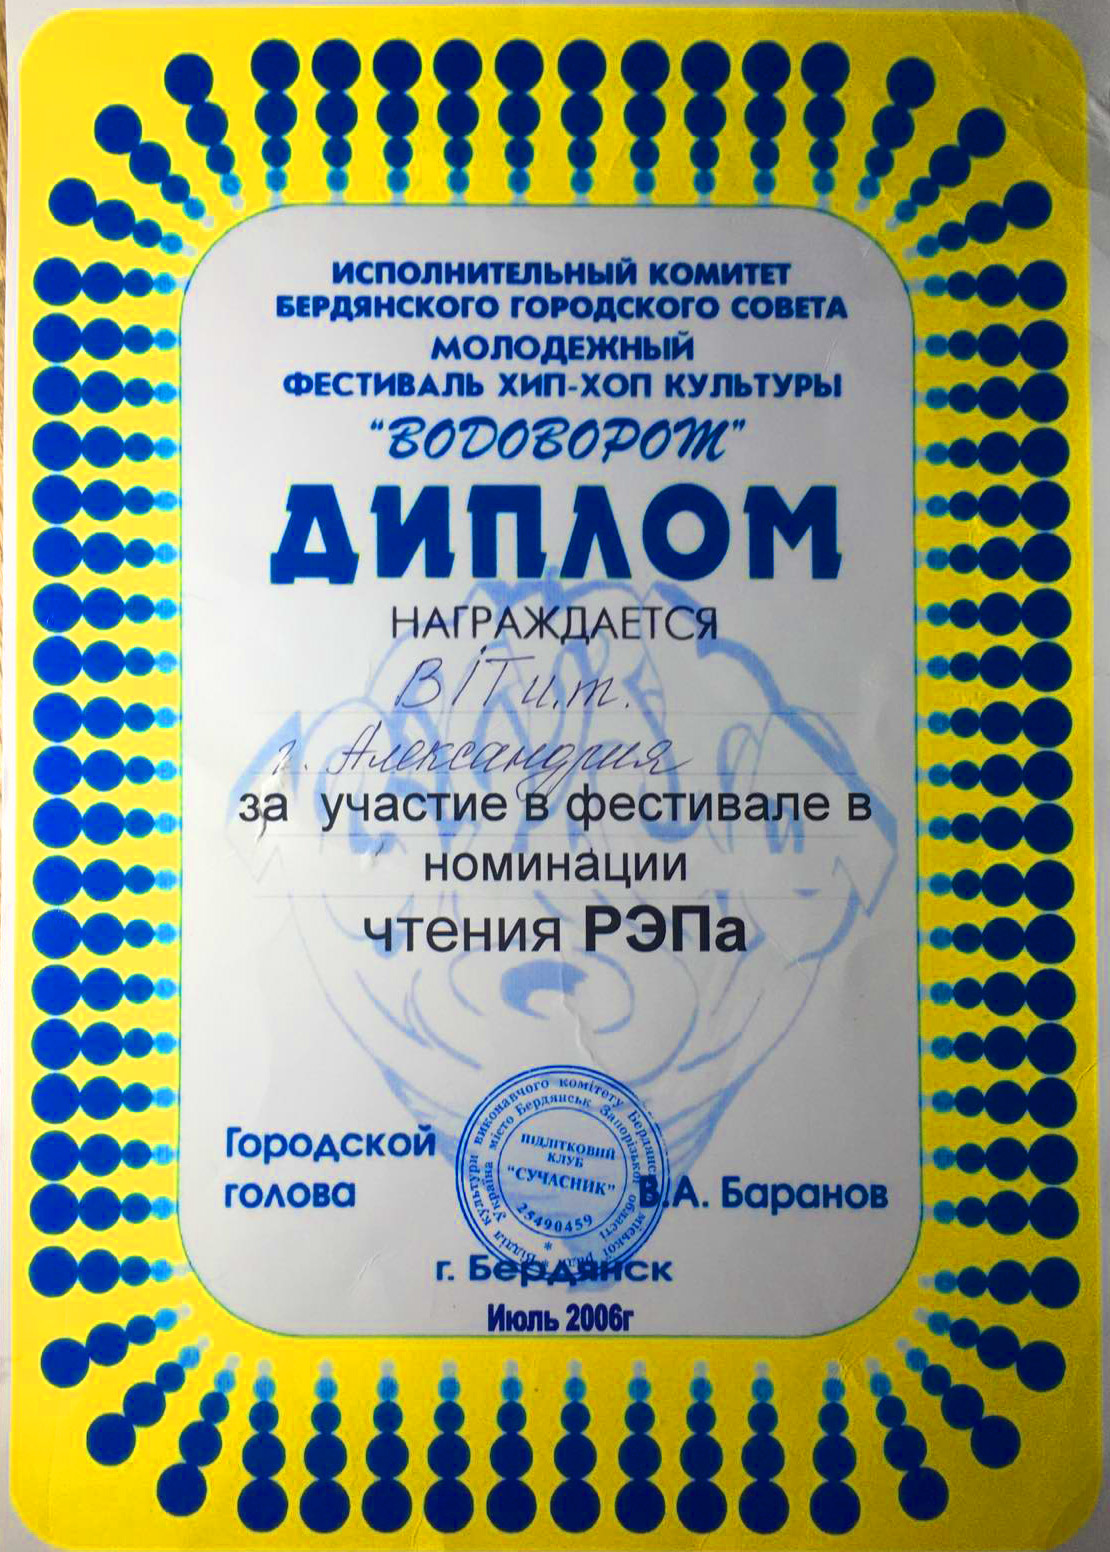 ИСПОЛНИТЕЛЬНЫЙ КОМИТЕТ
БЕРДЯНСКОГО ГОРОДСКОГО СОВЕТА
МОЛОДЕЖНЫЙ
ФЕСТИВАЛЬ ХИП-ХОП КУЛЬТУРЫ
"ВОДОВОРОТ"
ДИПЛОМ
НАГРАЖДАЕТСЯ
ВІТ и.т.
г. Александрия
за участие в фестивале в
номинации
чтения РЭПа
Городской
голова
В.А. Баранов
Відділ культури виконавчого комітету Бердянської міської ради
Україна місто Бердянськ Запорізької області
ПІДЛІТКОВИЙ
КЛУБ
"СУЧАСНИК"
25490459
г. Бердянск
Июль 2006г